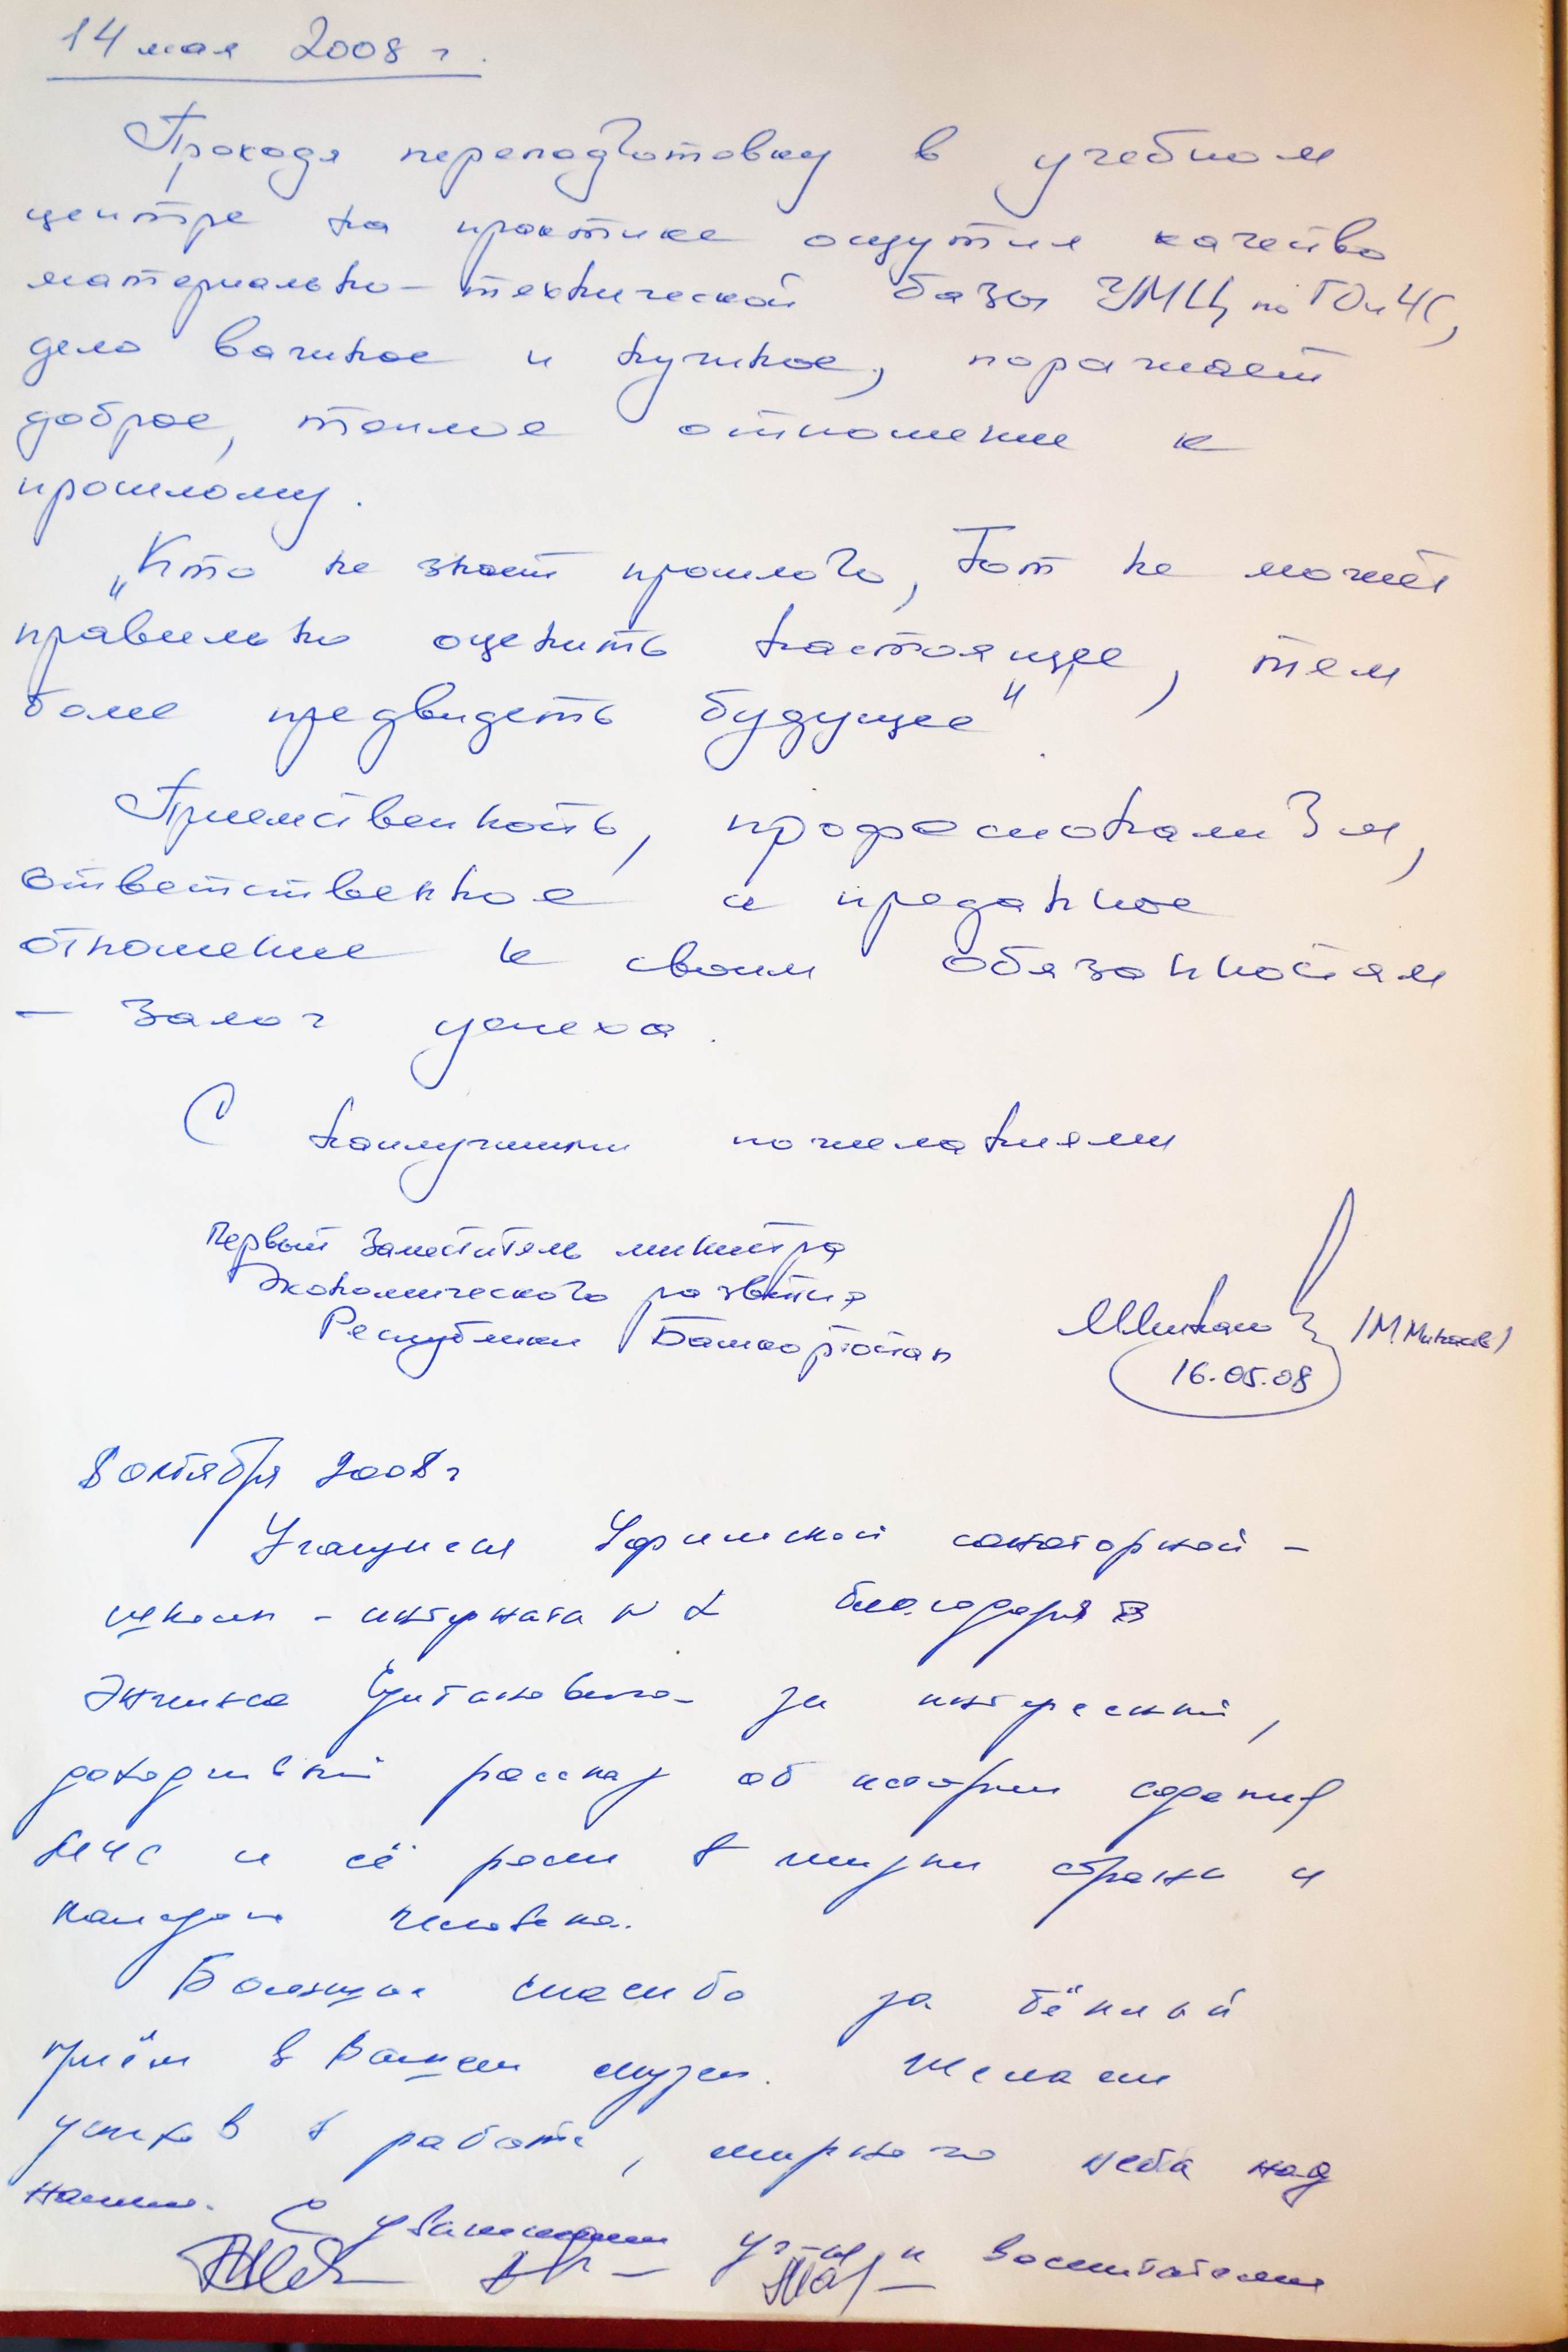 14 мая 2008 г.
Проходя переподготовку в учебном
центре на практике ощутил качество
материально-технической базы УМЦ по ГО и ЧС,
дело важное и нужное, поражает
доброе, теплое отношение к
прошлому.
„Кто не знает прошлого, тот не может
правильно оценить настоящее, тем
более предвидеть будущее".
Приемственность, професионализм,
ответственное и преданное
отношение к своим обязанностям
– залог успеха.
С наилучшими пожеланиями
Первый заместитель министра
Экономического развития
Республики Башкортостан
/М.Минаев/
16.05.08
8 октября 2008 г
Учащиеся Уфимской санаторной -
школы - интерната № благодарят
за интересный,
доходчивый рассказ об истории создания
МЧС и её роли в жизни страны и
каждого человека.
Большое спасибо за тёплый
приём в Вашем музее. Желаем
успехов в работе, мирного неба над
нами. С уважением уч-ся и воспитатели